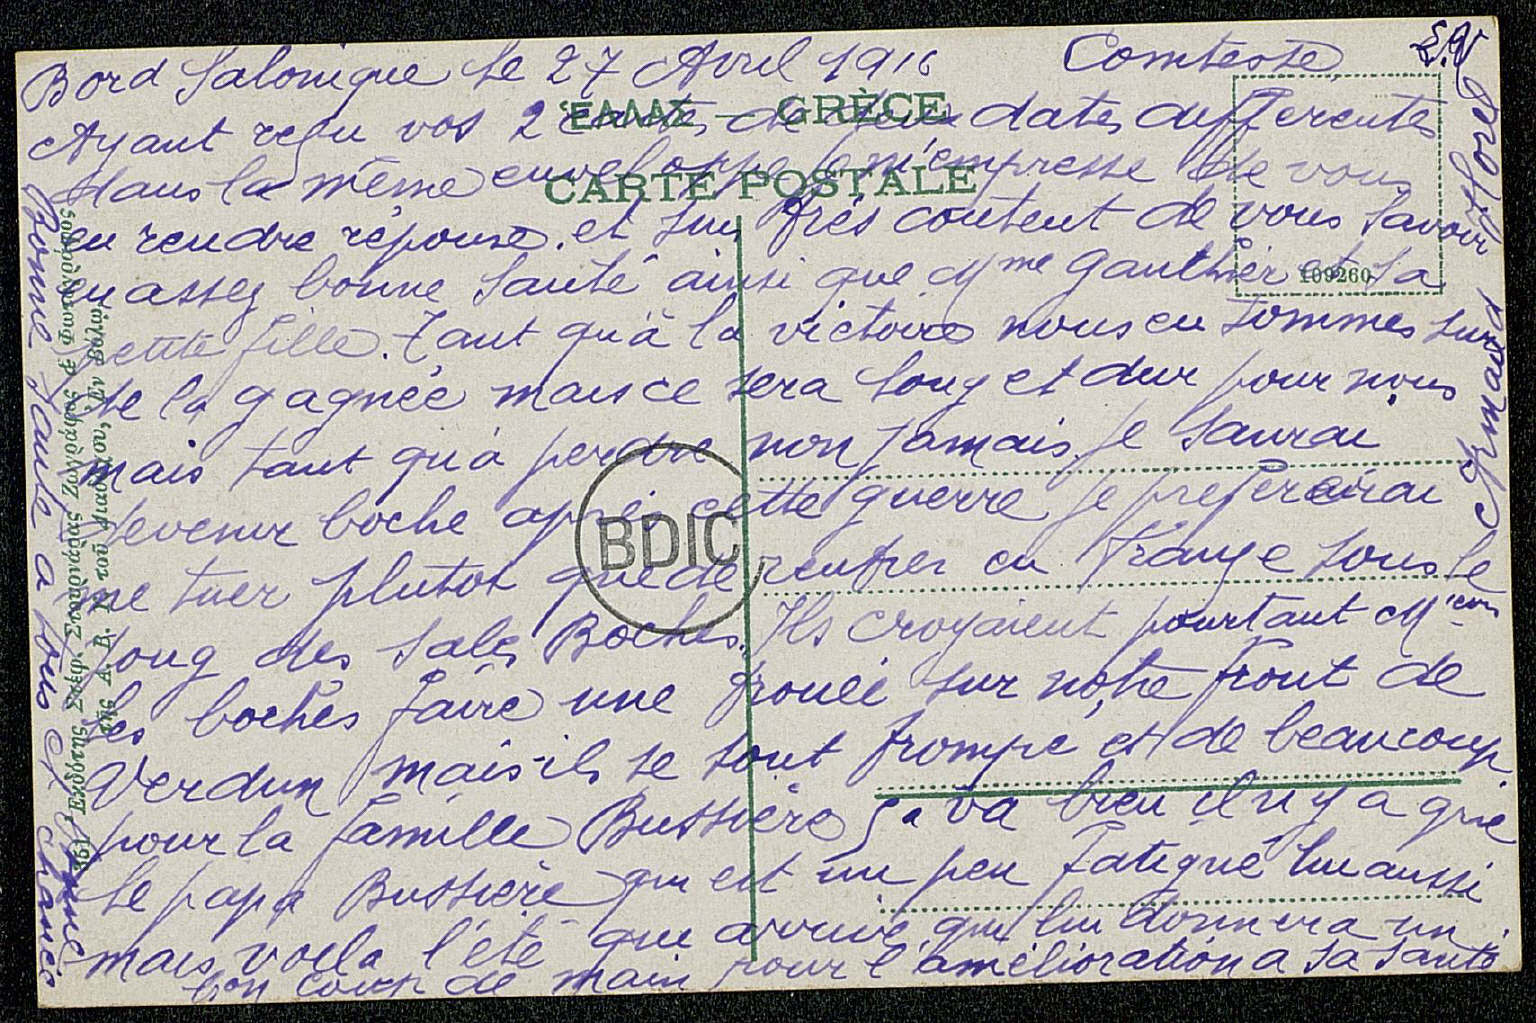 Bord Salonique le 27 Avril 1916 Comtesse
S.P.
ΈΛΛΑΣ — GRÈCE
Ayant reçu vos 2 cartes de deux dates differentes
CARTE POSTALE
dans la même enveloppe je m'empresse de vous
en rendre réponse. et suis très content de vous savoir
109260
en assez bonne santé ainsi que Mme Gauthier et sa
petite fille. Tant qu'à la victoire nous en sommes sur
de la gagnée mais ce sera long et dur pour nous
mais tant qu'à perdre non jamais. Je saurai
devenir boche après cette guerre je prefererai
BDIC
me tuer plutot que de rentrer en France sous le
joug des sales Boches. Ils croyaient pourtant Mrs
les boches faire une trouée sur notre front de
Verdun mais ils se sont trompé et de beaucoup
pour la famille Bussière ça va bien il n'y a que
le papa Bussière qui est un peu fatigué lui aussi
mais voila l'été qui arrive qui lui donnera un
bon coup de main pour l'amélioration a sa santé
Bonne Santé a tous et bonne chance
961 Ἐκδότης Στεφ. Στουρνάρας Ζωγράφος Φωτογράφος
τῆς Α. Β. Υ. τοῦ Διαδόχου, Ἐν Βόλῳ